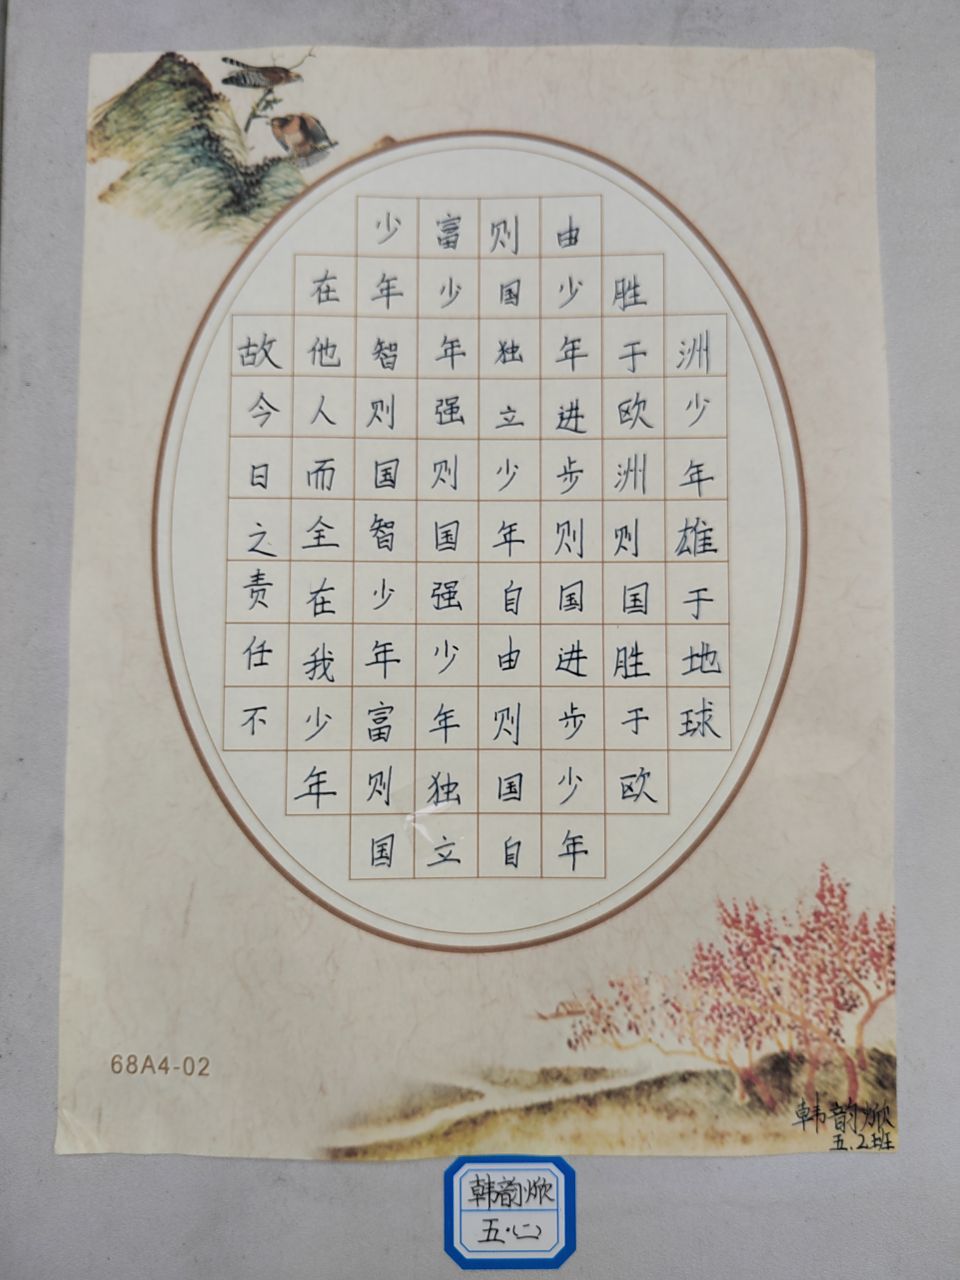 故今日之责任不
在他人而全在我少年
少年智则国智少年富则国
富少年强则国强少年独立
则国独立少年自由则国自
由少年进步则国进步少年
胜于欧洲则国胜于欧
洲少年雄于地球
68A4-02
韩韵焮
五.2班
韩韵焮
五·(二)